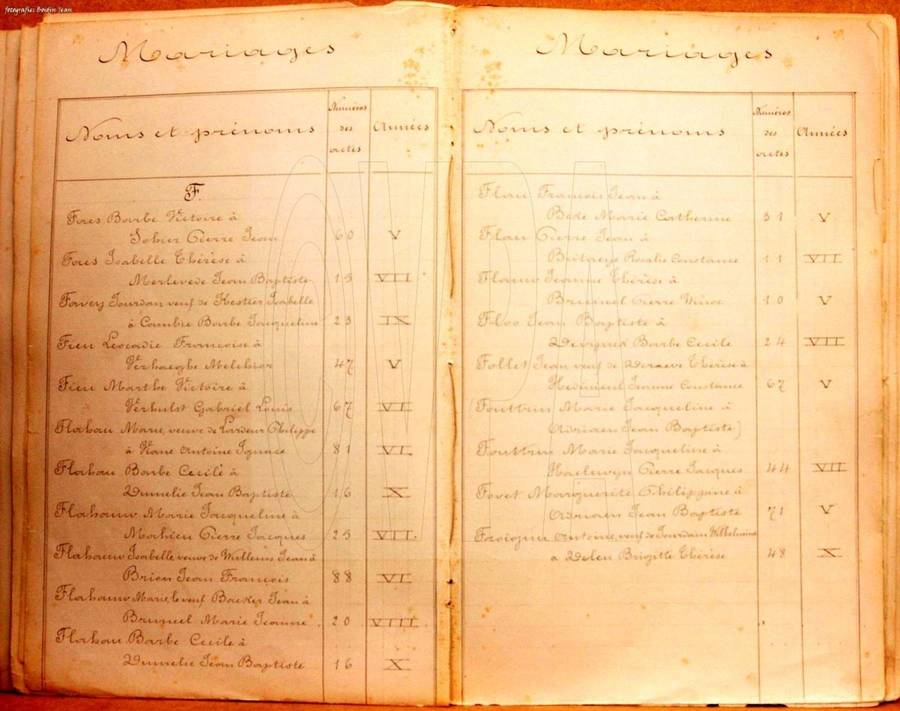 fotografie: Boidin Jean
Mariages
Noms et prénoms Numéros des actes Années
F.
Fores Barbe Victoire à
Sohier Pierre Jean 60 V
Fores Isabelle Thérèse à
Merlevede Jean Baptiste 15 VII
Favery Jourdan, veuf de Hester Isabelle
à Cambie Barbe Jacqueline 23 IX
Fieu Leocadie Francoise à
Verhaeghe Melchior 47 V
Fieu Marthe Victoire à
Verhulst Gabriel Louis 67 VI
Flahau Marie, veuve de Lardeur Philippe
à Antoine Ignace 81 VI
Flahau Barbe Cecile à
Dumelie Jean Baptiste 16 X
Flahauw Marie Jacqueline à
Mahieu Pierre Jacques 25 VII.
Flahauw Isabelle veuve de Willems Jean à
Brion Jean François 88 VI
Flahauw Marie, le veuf Jean à
Bruneel Marie Jeanne 20 VIII
Flahau Barbe Cecile à
Dumelie Jean Baptiste 16 X
Mariages
Noms et prénoms Numéros des actes Années
Flau François Jean à
Marie Catherine 31 V
Flau Pierre Jean à
Rosalie Constance 11 VII
Flauw Jeanne Thérèse à
Pierre 10 V
Floo Jean Baptiste à
Barbe Cecile 24 VII
Follet Jean veuf de Thérèse à
Jeanne Constance 67 V
Marie Jacqueline à
Adriaen Jean Baptiste)
Marie Jacqueline à
Haelewyn Pierre Jacques 44 VII
Foret Marguerite Philippine à
Adriaen Jean Baptiste 71 V
Antoine, veuf de Jourdain
a Delen Brigitte Thérèse 48 X